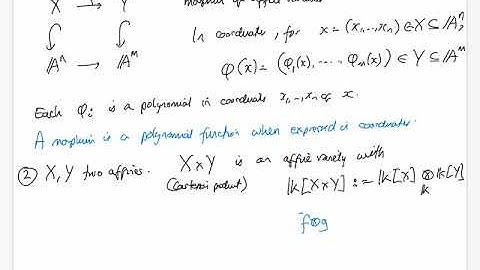 X → Y morphism of affine varieties
In coordinates, for x = (x₁,...,xₙ) ∈ X ⊆ 𝔸ⁿ,
𝔸ⁿ → 𝔸ᵐ φ(x) = (φ₁(x), ..., φₘ(x)) ∈ Y ⊆ 𝔸ᵐ
Each φᵢ is a polynomial in coordinates x₁,..,xₙ of x.
A morphism is a polynomial function when expressed in coordinates.
② X, Y two affines. X×Y is an affine variety with
(Cartesian product) 𝕜[X×Y] := 𝕜[X] ⊗ 𝕜[Y]
𝕜
f⊗g